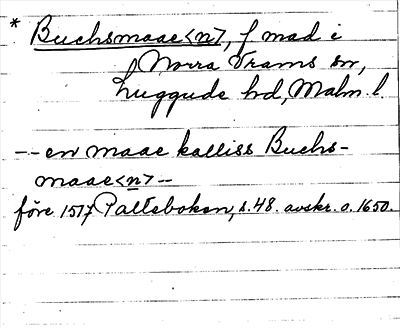 * Buchsmaae<n>, f mad i
Norra Vrams sn,
Luggude hd, Malm. l.
-- en maae kalliss Buchs-
maae<n> --
före 1517 Palteboken, s. 48. avskr. o. 1650.